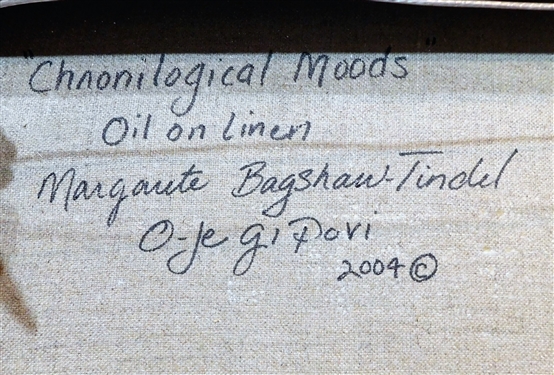 "Chronilogical Moods"
Oil on linen
Margarete Bagshaw-Tindel
O-Je Gi Povi
2004 ©